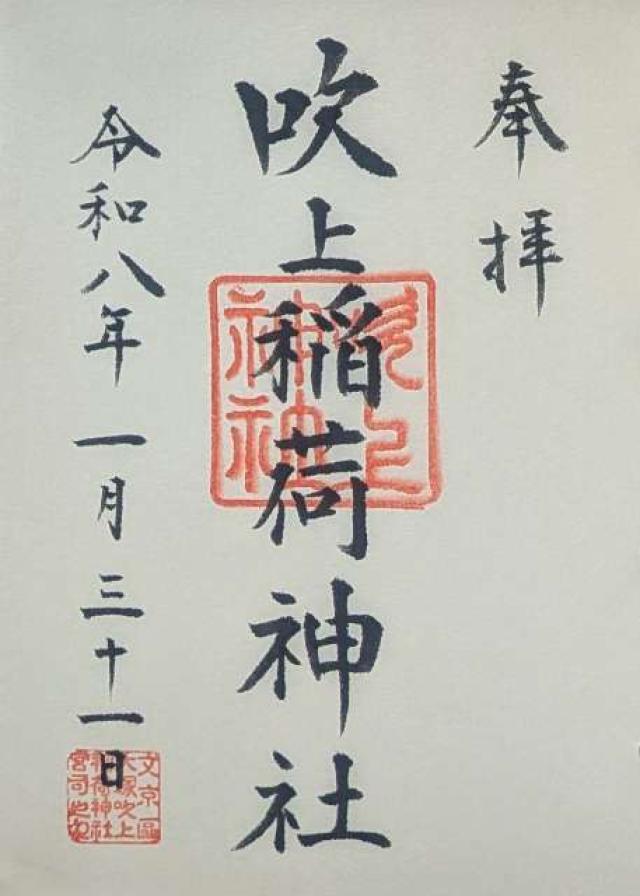 奉拝
吹上稲荷神社
令和八年一月三十一日
吹上
神社
文京區
大塚吹上
稲荷神社
宮司之印